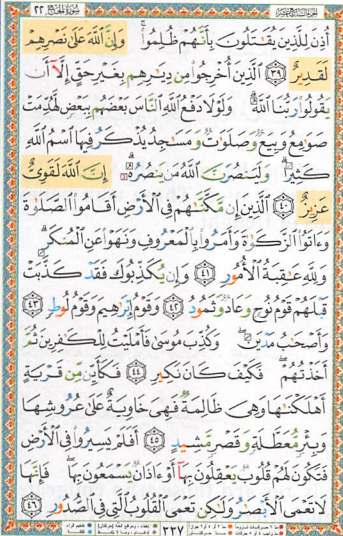 ٢٢ سُورَةُ الحَجِّ الجزء السابع عشر
أُذِنَ لِلَّذِينَ يُقَٰتَلُونَ بِأَنَّهُمْ ظُلِمُوا۟ ۚ وَإِنَّ ٱللَّهَ عَلَىٰ نَصْرِهِمْ
لَقَدِيرٌ ٣٩ ٱلَّذِينَ أُخْرِجُوا۟ مِن دِيَٰرِهِم بِغَيْرِ حَقٍّ إِلَّآ أَن
يَقُولُوا۟ رَبُّنَا ٱللَّهُ ۗ وَلَوْلَا دَفْعُ ٱللَّهِ ٱلنَّاسَ بَعْضَهُم بِبَعْضٍ لَّهُدِّمَتْ
صَوَٰمِعُ وَبِيَعٌ وَصَلَوَٰتٌ وَمَسَٰجِدُ يُذْكَرُ فِيهَا ٱسْمُ ٱللَّهِ
كَثِيرًا ۗ وَلَيَنصُرَنَّ ٱللَّهُ مَن يَنصُرُهُۥٓ ۗ إِنَّ ٱللَّهَ لَقَوِىٌّ
عَزِيزٌ ٤٠ ٱلَّذِينَ إِن مَّكَّنَّٰهُمْ فِى ٱلْأَرْضِ أَقَامُوا۟ ٱلصَّلَوٰةَ
وَءَاتَوُا۟ ٱلزَّكَوٰةَ وَأَمَرُوا۟ بِٱلْمَعْرُوفِ وَنَهَوْا۟ عَنِ ٱلْمُنكَرِ ۗ
وَلِلَّهِ عَٰقِبَةُ ٱلْأُمُورِ ٤١ وَإِن يُكَذِّبُوكَ فَقَدْ كَذَّبَتْ
قَبْلَهُمْ قَوْمُ نُوحٍ وَعَادٌ وَثَمُودُ ٤٢ وَقَوْمُ إِبْرَٰهِيمَ وَقَوْمُ لُوطٍ ٤٣
وَأَصْحَٰبُ مَدْيَنَ ۖ وَكُذِّبَ مُوسَىٰ فَأَمْلَيْتُ لِلْكَٰفِرِينَ ثُمَّ
أَخَذْتُهُمْ ۖ فَكَيْفَ كَانَ نَكِيرِ ٤٤ فَكَأَيِّن مِّن قَرْيَةٍ
أَهْلَكْنَٰهَا وَهِىَ ظَالِمَةٌ فَهِىَ خَاوِيَةٌ عَلَىٰ عُرُوشِهَا
وَبِئْرٍ مُّعَطَّلَةٍ وَقَصْرٍ مَّشِيدٍ ٤٥ أَفَلَمْ يَسِيرُوا۟ فِى ٱلْأَرْضِ
فَتَكُونَ لَهُمْ قُلُوبٌ يَعْقِلُونَ بِهَآ أَوْ ءَاذَانٌ يَسْمَعُونَ بِهَا ۖ فَإِنَّهَا
لَا تَعْمَى ٱلْأَبْصَٰرُ وَلَٰكِن تَعْمَى ٱلْقُلُوبُ ٱلَّتِى فِى ٱلصُّدُورِ ٤٦
٣٣٧